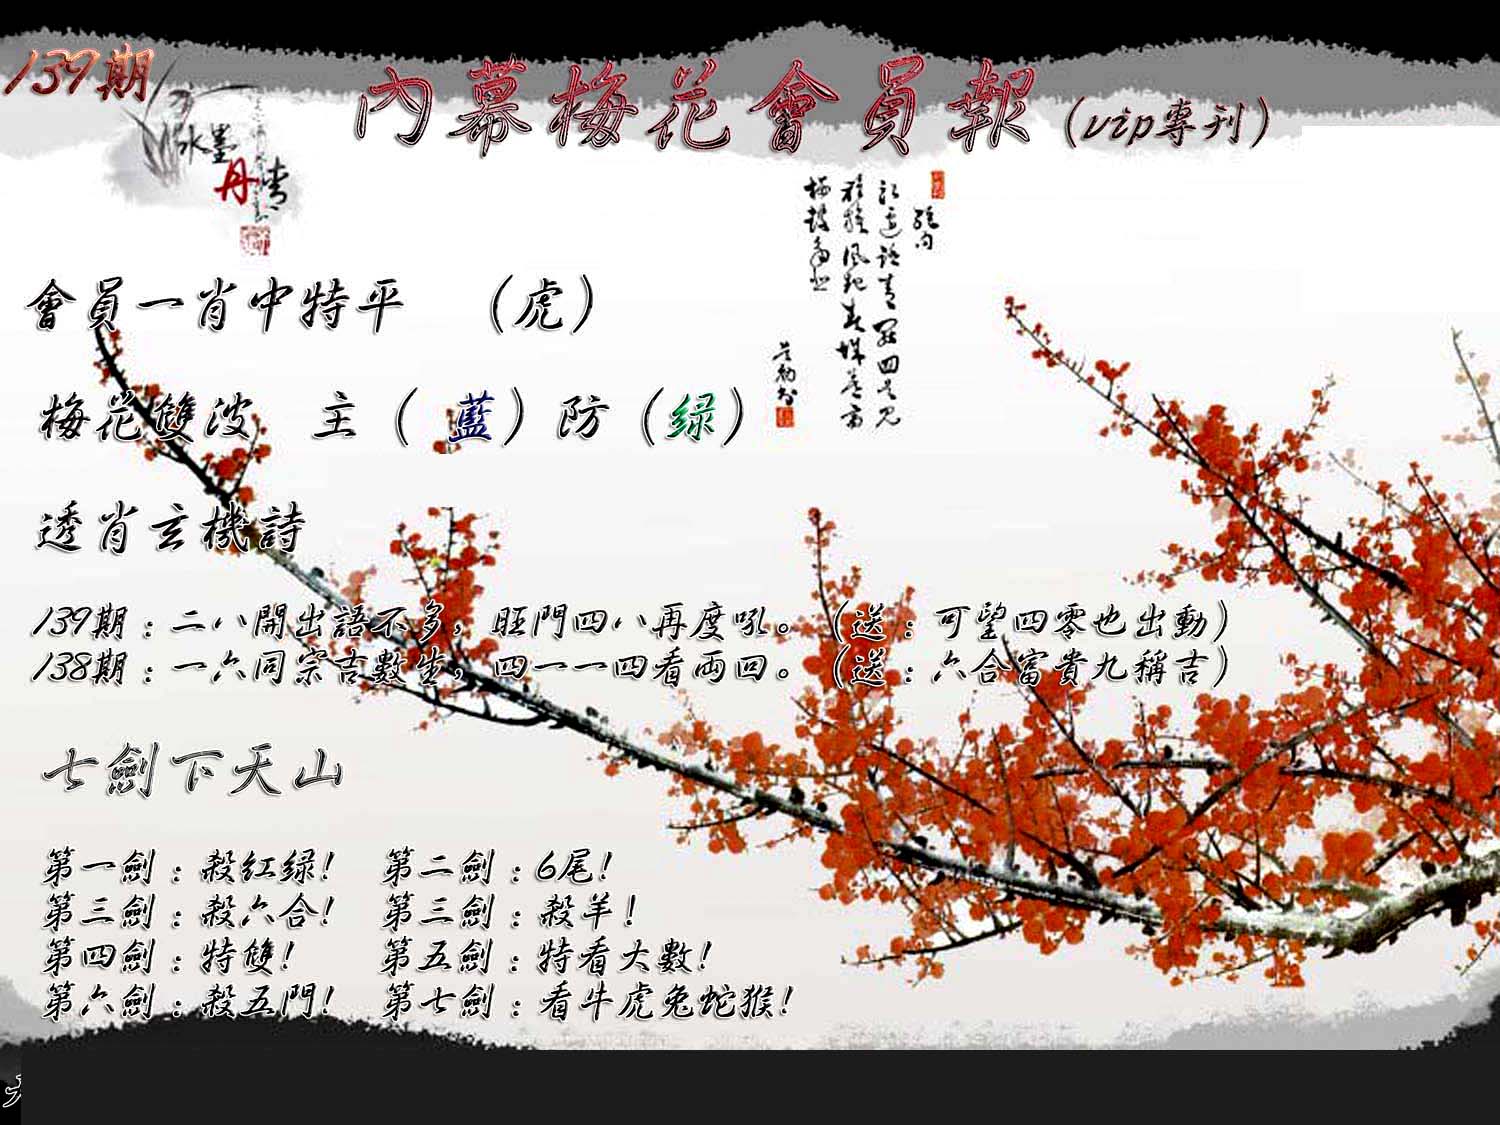 139期
內幕梅花會員報（vip專刊）
水墨
丹青
會員一肖中特平 （虎）
梅花雙波 主（藍）防（绿）
透肖玄機詩
139期：二八開出語不多，旺門四八再度吼。（送：可望四零也出動）
138期：一六同宗吉數生，四一一四看兩回。（送：六合富貴九稱吉）
七劍下天山
第一劍：殺紅绿! 第二劍：6尾!
第三劍：殺六合! 第三劍：殺羊!
第四劍：特雙! 第五劍：特看大數!
第六劍：殺五門! 第七劍：看牛虎兔蛇猴!